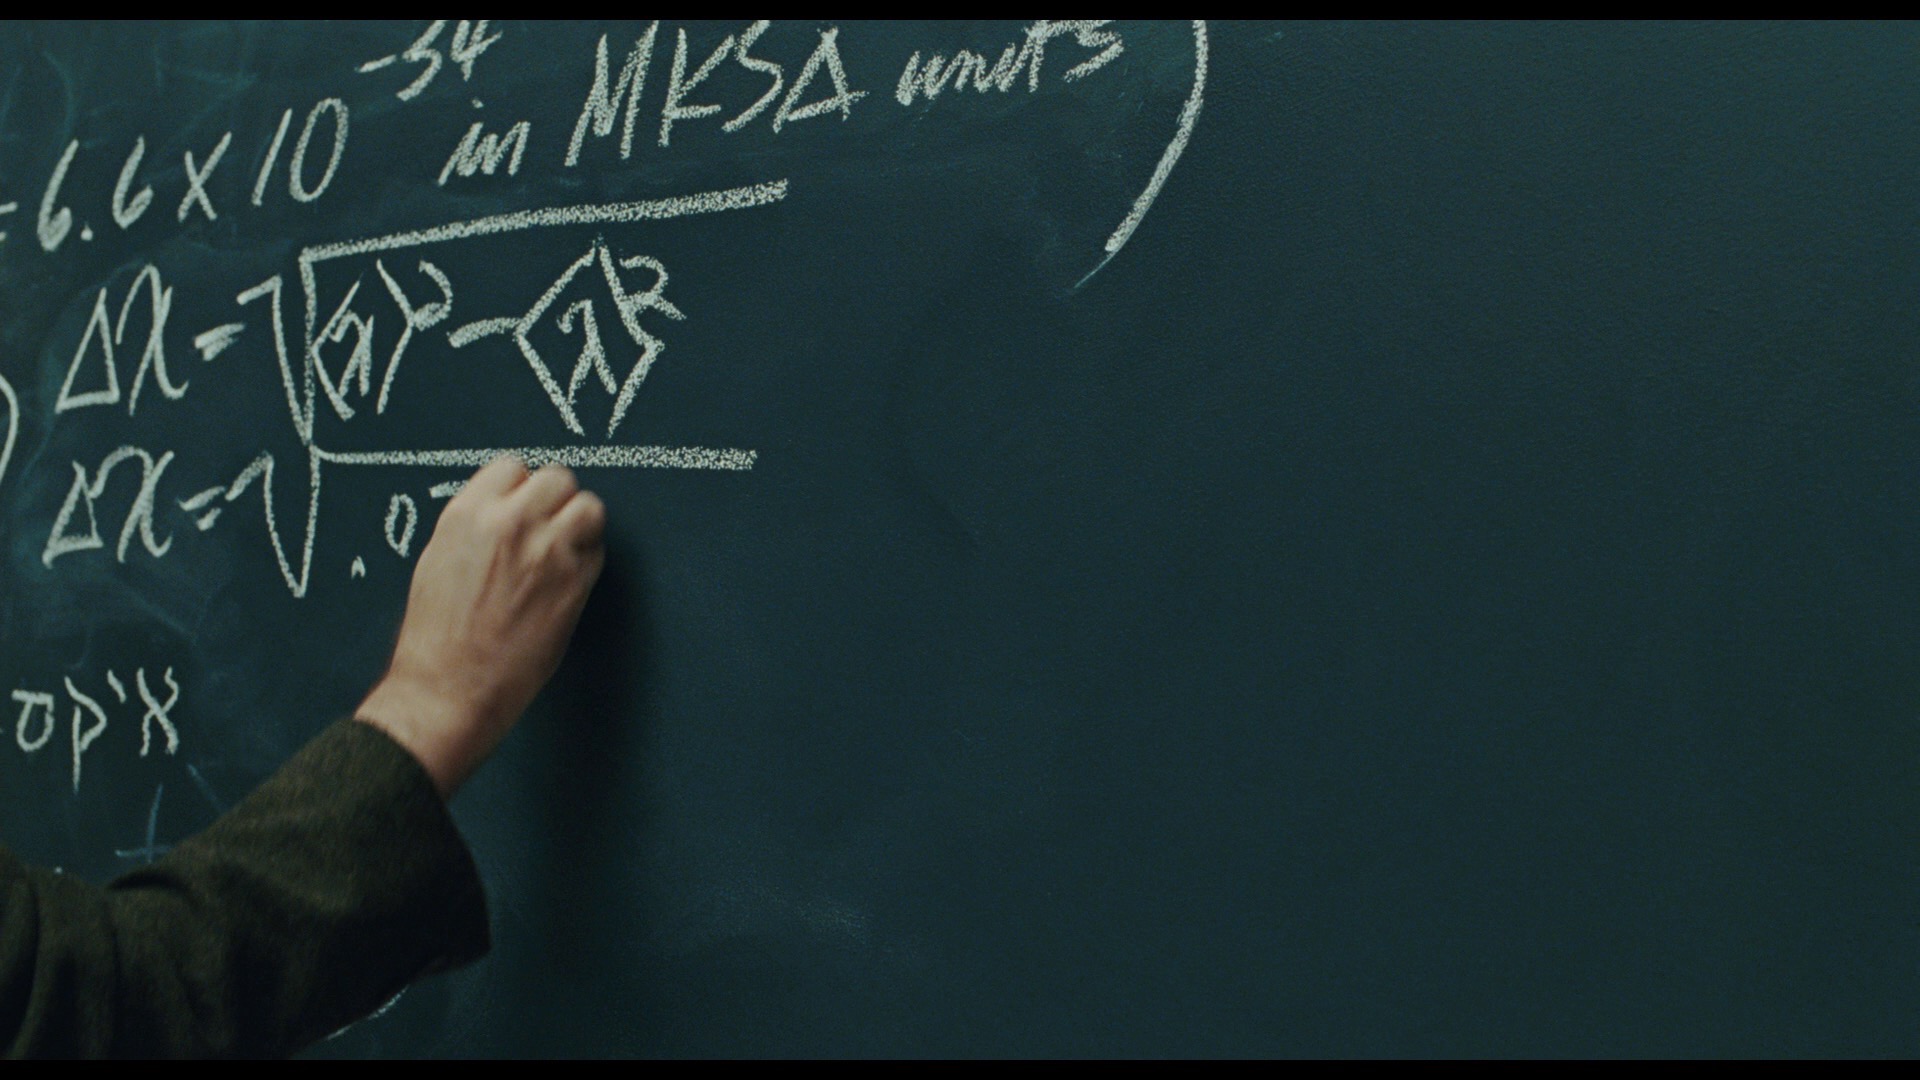 =6.6×10⁻³⁴ in MKSA units)
Δx=√⟨x⟩²-⟨x⟩²
Δx=√.0
op'x